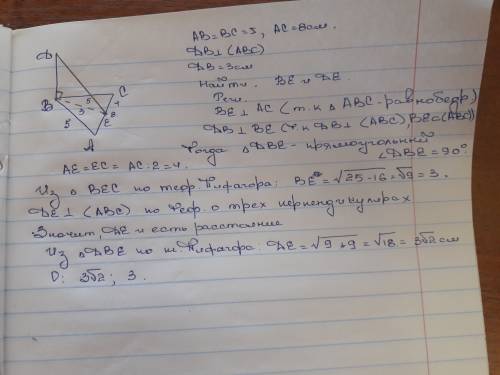 AB=BC=5, AC=8см.
DB⊥(ABC)
DB=3см
Найти: BE и DE.
Реш:
BE⊥AC (т.к Δ ABC-равнобедр)
DB⊥BE (т.к DB⊥(ABC), BE⊂(ABC))
Тогда ΔDBE-прямоугольный
∠DBE=90°.
D
B
5
3
C
4
E
5
A
AE=EC=AC:2=4.
Из ΔBEC по теор. Пифагора: BE=√25-16=√9=3.
DE⊥(ABC) по теор. о трех перпендикулярах
Значит, DE и есть расстояние
Из ΔDBE по т. Пифагора: DE=√9+9=√18=3√2см
О: 3√2; 3.